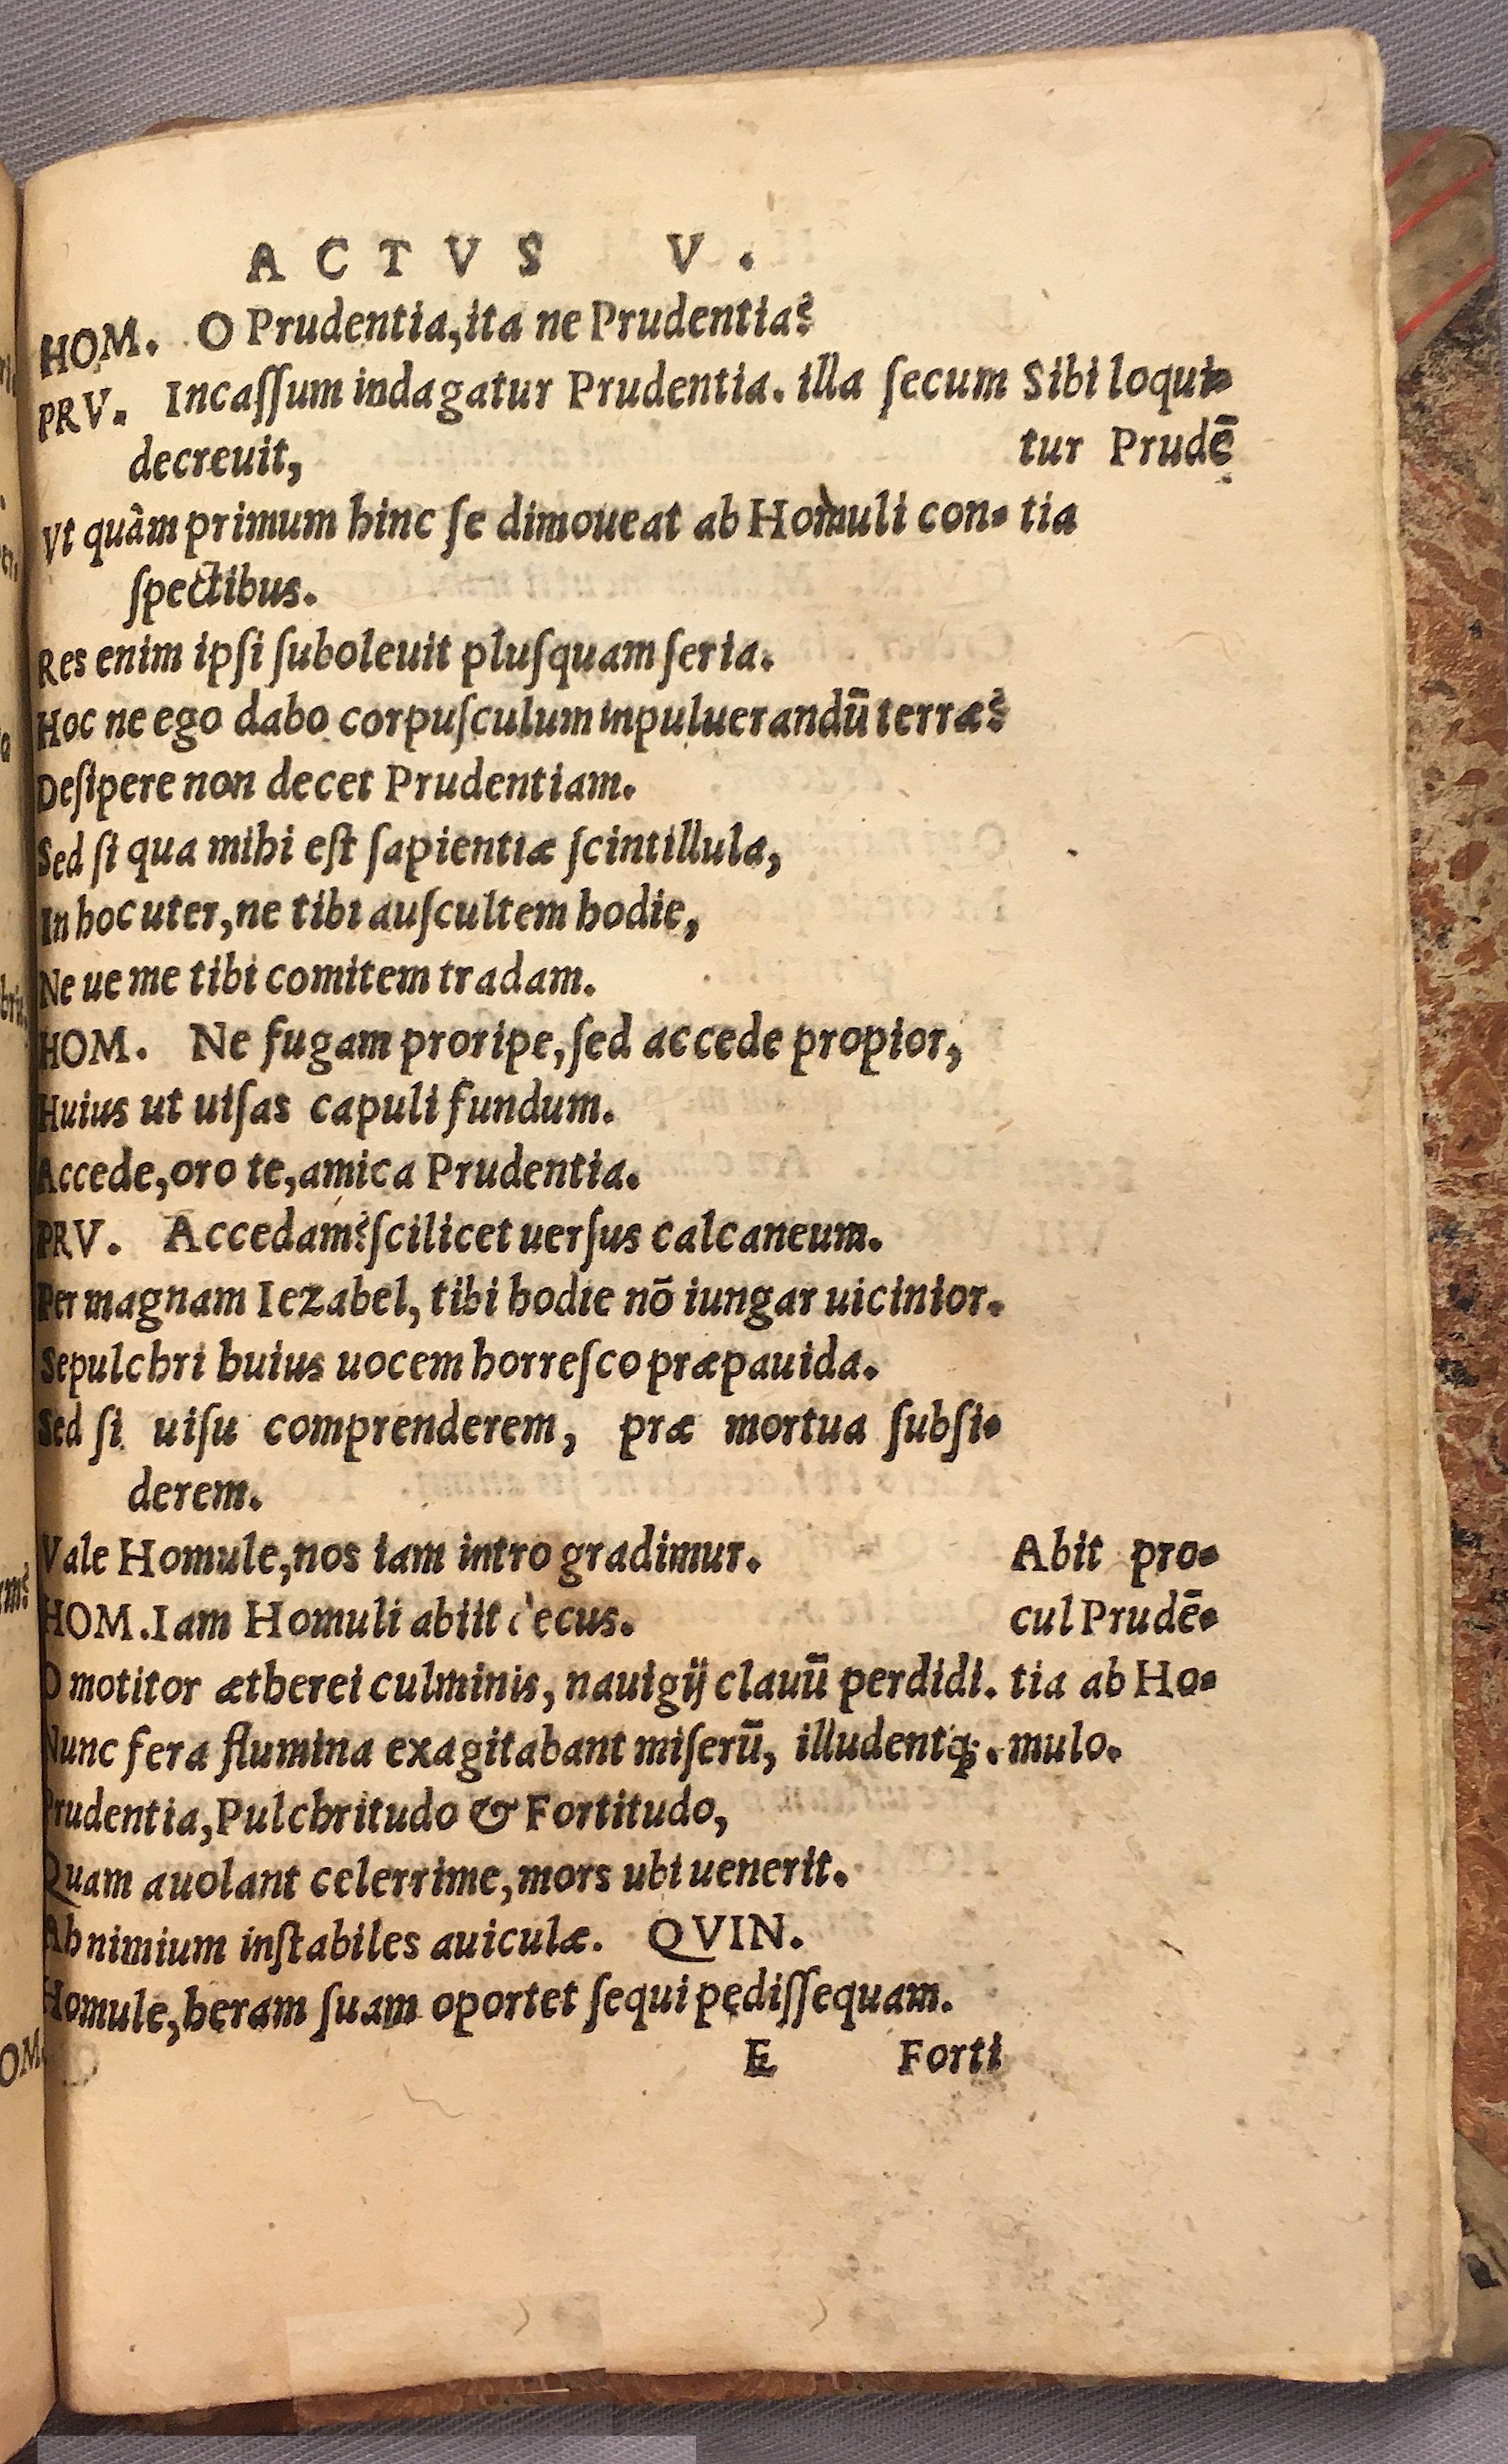 ACTVS V.
HOM. O Prudentia, ita ne Prudentia?
PRV. Incaſſum indagatur Prudentia. illa ſecum
decreuit,
Vt quàm primum hinc ſe dimoueat ab Homuli con-
ſpectibus.
Sibi loqui-
tur Prudē
tia
Res enim ipſi ſuboleuit pluſquam ſeria.
Hoc ne ego dabo corpuſculum inpuluerandū terræ?
Deſipere non decet Prudentiam.
Sed ſi qua mihi eſt ſapientiæ ſcintillula,
In hoc uter, ne tibi auſcultem hodie,
Ne ue me tibi comitem tradam.
HOM. Ne fugam proripe, ſed accede propior,
Huius ut uiſas capuli fundum.
Accede, oro te, amica Prudentia.
PRV. Accedam? ſcilicet uerſus calcaneum.
Per magnam Iezabel, tibi hodie nō iungar uicinior.
Sepulchri huius uocem horreſco præpauida.
Sed ſi uiſu comprenderem, præ mortua ſubſi-
derem.
Vale Homule, nos iam intro gradimur.
HOM. Iam Homuli abiit decus.
O motitor ætherei culminis, nauigij clauū perdidi.
Nunc fera flumina exagitabant miſerū, illudentq;.
Abit pro-
cul Prudē-
tia ab Ho-
mulo.
Prudentia, Pulchritudo & Fortitudo,
Quam auolant celerrime, mors ubi uenerit.
Ah nimium inſtabiles auiculæ. QVIN.
Homule, heram ſuam oportet ſequi pediſſequam.
E Forti